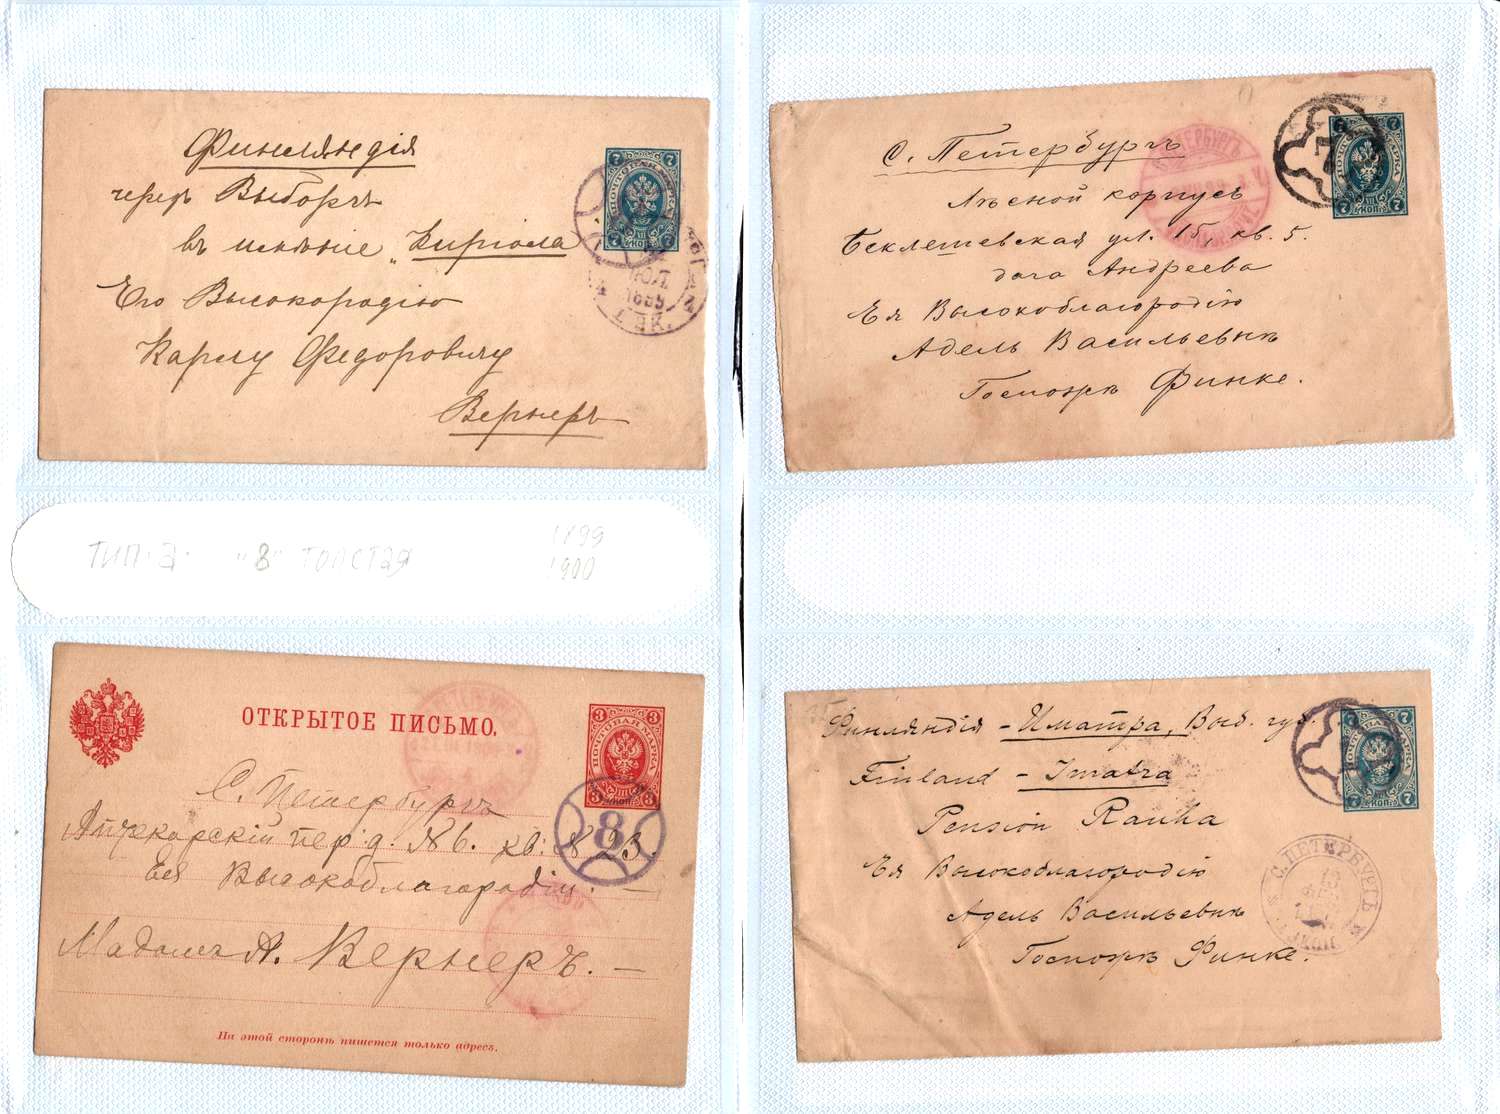 Финляндія
черезъ Выборгъ
въ имѣніе „Киріола
Его Высокородію
Карлу Федоровичу
Вернеръ
7 7
ПОЧТОВАЯ МАРКА
7 КОП. 7
ЮЛ
1895
С. Петербургъ
Лѣсной корпусъ
Беклешевская ул. 15, кв. 5.
дача Андреева
Ея Высокоблагородію
Адель Васильевнѣ
Госпожѣ Финке.
7 7
МАРКА
7 КОП. 7
ТИП. 3. "8" ТОЛСТАЯ
1899
1900
ОТКРЫТОЕ ПИСЬМО.
3 3
ПОЧТОВАЯ МАРКА
3 КОП. 3
8
С. Петербургъ
Аптекарскій пер. д. N 6. кв. N 23.
Ея Высокоблагородію
Мадамъ А. Вернеръ.
На этой сторонѣ пишется только адресъ.
Финляндія - Иматра, Выб. губ.
Finland - Imatra
Pension Rauha
Ея Высокоблагородію
Адель Васильевнѣ
Госпожѣ Финке.
7 7
ПОЧТОВАЯ МАРКА
7 КОП. 7
С. ПЕТЕРБУРГЪ